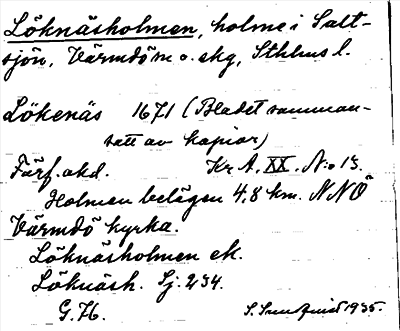 Löknäsholmen, holme i Salt-
sjön, Värmdö sn o. skg, Sthlms l.
Lökenäs 1671 (Bladet samman-
satt av kopior)
Färf. akd. Kr A, XX. N:o 13.
Holmen belägen 4,8 km. NNÖ
Värmdö kyrka.
Löknäsholmen ek.
Löknäsh. Sj. 234.
G. H. S. Sundquist 1935.